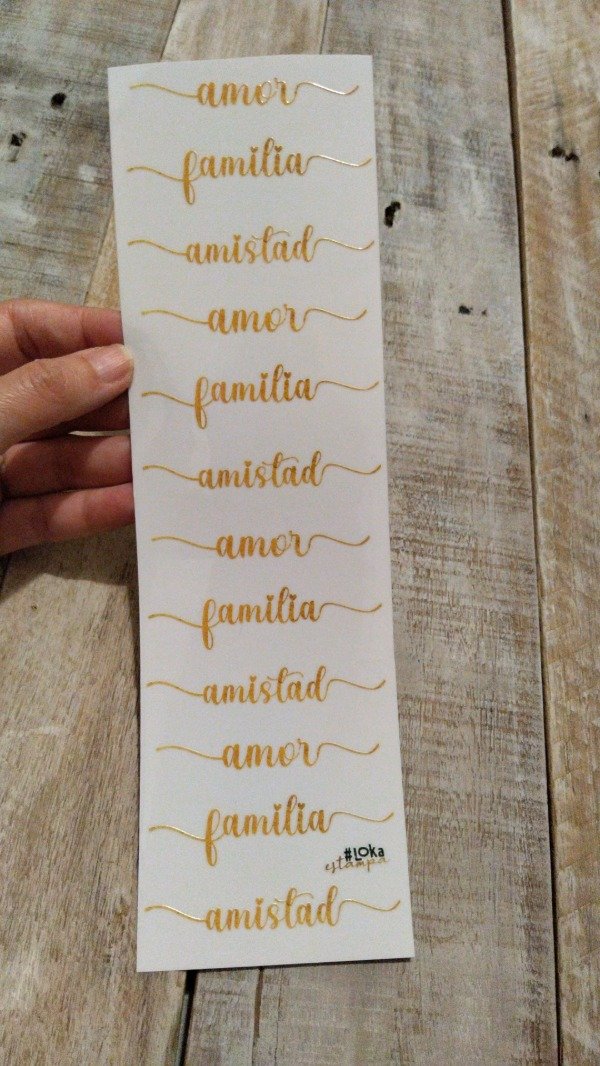 amor
familia
amistad
amor
familia
amistad
amor
familia
amistad
amor
familia
#LOKa
estampa
amistad